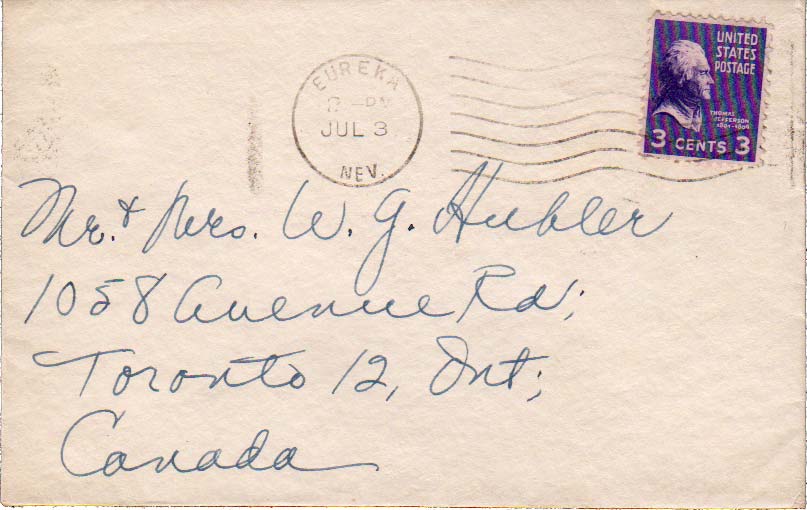 UNITED
STATES
POSTAGE
THOMAS
JEFFERSON
1801-1809
3 CENTS 3
EUREKA
PM
JUL 3
NEV.
Mr. & Mrs. W. G. Hubler
1058 Avenue Rd;
Toronto 12, Ont;
Canada